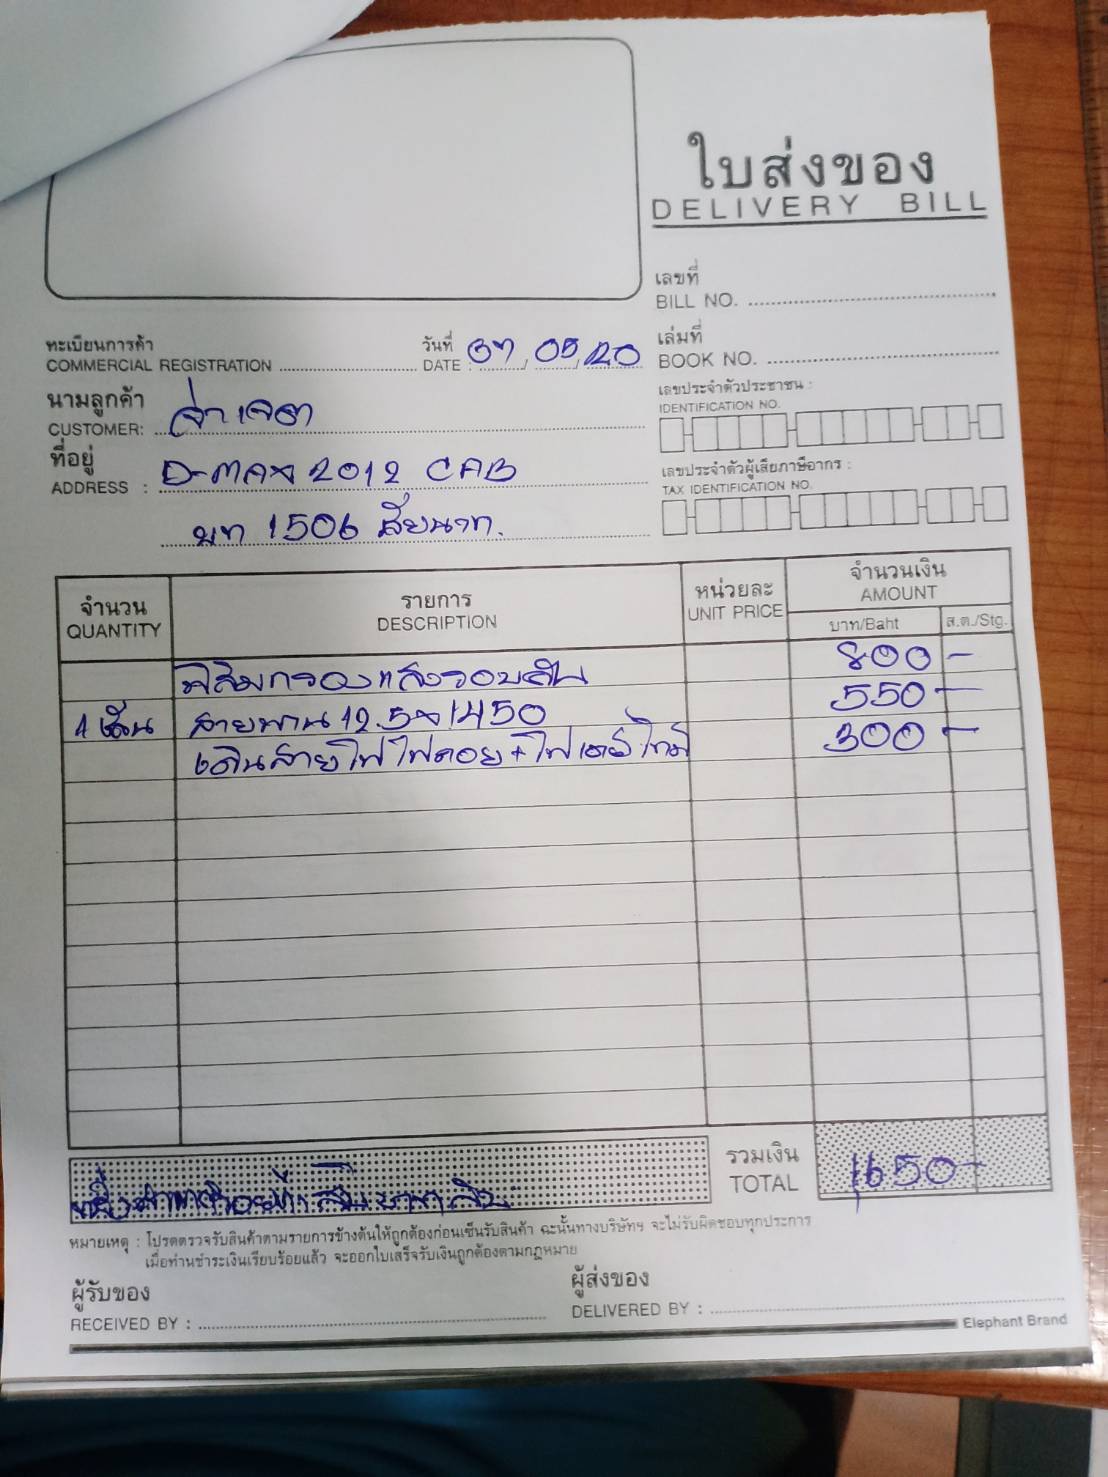 ใบส่งของ
DELIVERY BILL
เลขที่
BILL NO.
ทะเบียนการค้า
COMMERCIAL REGISTRATION
วันที่
DATE : 07 / 05 / 20
เล่มที่
BOOK NO.
นามลูกค้า
CUSTOMER: จ่าเจตา
เลขประจำตัวประชาชน :
IDENTIFICATION NO.
ที่อยู่
ADDRESS : D-max 2012 CAB
เลขประจำตัวผู้เสียภาษีอากร :
TAX IDENTIFICATION NO.
บท 1506 ชัยนาท.
จำนวน รายการ หน่วยละ จำนวนเงิน
QUANTITY DESCRIPTION UNIT PRICE AMOUNT
บาท/Baht ส.ต./Stg.
ฟิล์มกรองแสงรอบคัน 800 -
1 เส้น สายพาน 12.5x1450 550 -
เดินสายไฟ ไฟ + ไฟ 300 -
รวมเงิน
TOTAL 1650 -
หนึ่งพันหกร้อยห้าสิบบาทถ้วน
หมายเหตุ : โปรดตรวจรับสินค้าตามรายการข้างต้นให้ถูกต้องก่อนเซ็นรับสินค้า ฉะนั้นทางบริษัทฯ จะไม่รับผิดชอบทุกประการ
เมื่อท่านชำระเงินเรียบร้อยแล้ว จะออกใบเสร็จรับเงินถูกต้องตามกฎหมาย
ผู้รับของ
RECEIVED BY :
ผู้ส่งของ
DELIVERED BY :
Elephant Brand